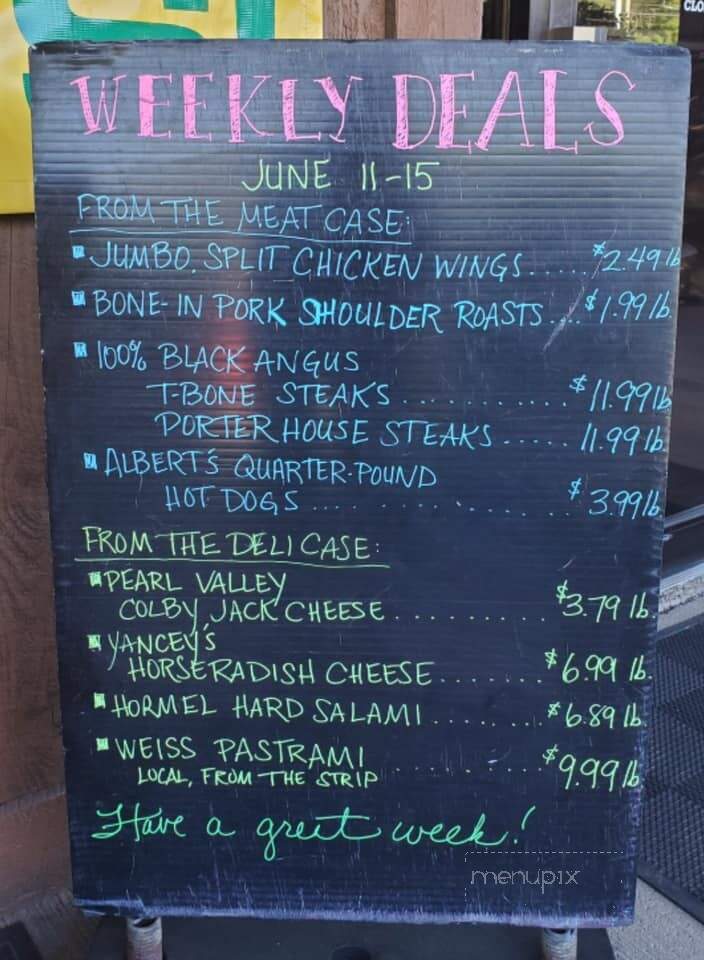 CLO
WEEKLY DEALS
JUNE 11-15
FROM THE MEAT CASE:
JUMBO, SPLIT CHICKEN WINGS..... $2.49 lb
BONE-IN PORK SHOULDER ROASTS.... $1.99 lb.
100% BLACK ANGUS
T-BONE STEAKS ............ $11.99 lb
PORTERHOUSE STEAKS ..... 11.99 lb
ALBERT'S QUARTER-POUND
HOT DOGS .... .......... $3.99 lb.
FROM THE DELI CASE:
PEARL VALLEY
COLBY JACK CHEESE .......... $3.79 lb.
YANCEY'S
HORSERADISH CHEESE ....... $6.99 lb.
HORMEL HARD SALAMI ........ $6.89 lb.
WEISS PASTRAMI
LOCAL, FROM THE STRIP .......... $9.99 lb
Have a great week!
menupix